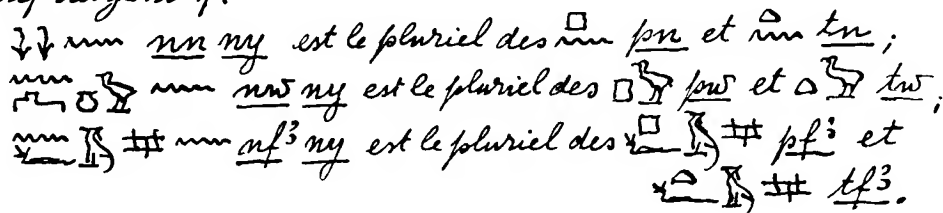 𓇑𓇑 𓈖 nn ny est le pluriel des 𓊪𓈖 pn et 𓏏𓈖 tn ;
nw ny est le pluriel des 𓊪𓅱 pw et 𓏏𓅱 tw ;
nf³ ny est le pluriel des pf³ et
tf³.